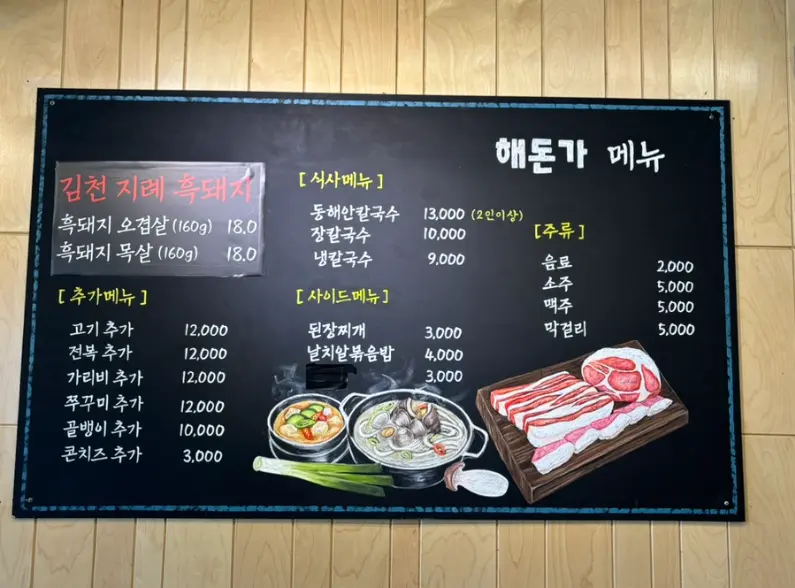 해돈가 메뉴
김천 지례 흑돼지
흑돼지 오겹살 (160g) 18.0
흑돼지 목살 (160g) 18.0
[ 추가메뉴 ]
고기 추가 12,000
전복 추가 12,000
가리비 추가 12,000
쭈꾸미 추가 12,000
골뱅이 추가 10,000
콘치즈 추가 3,000
[ 식사메뉴 ]
동해안칼국수 13,000 (2인이상)
장칼국수 10,000
냉칼국수 9,000
[ 사이드메뉴 ]
된장찌개 3,000
날치알볶음밥 4,000
3,000
[ 주류 ]
음료 2,000
소주 5,000
맥주 5,000
막걸리 5,000